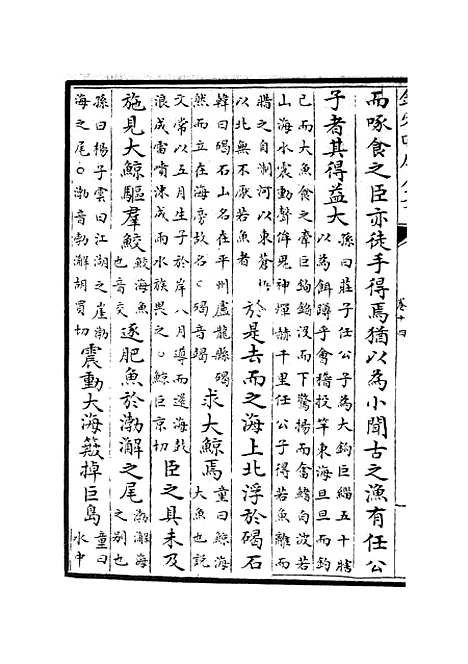 而啄食之臣亦徒手得焉猶以為小聞古之漁有任公
子者其得益大
孫曰莊子任公子為大鉤巨緇五十犗
以為餌蹲乎會稽投竿東海旦旦而釣
已而大魚食之牽巨鉤錎沒而下驚揚而奮鰭白波若
山海水震動聲侔鬼神煇赫千里任公子得若魚離而
腊之自制河以東蒼
以北無不厭若魚者
於是去而之海上北浮於碣石
韓曰碣石山名在平州盧龍縣碣
然而立在海旁故名○碣音竭
求大鯨焉
童曰鯨海
大魚也說
文常以五月生子於岸八月導而還海鼓
浪成雷噴沫成雨水族畏之○鯨巨京切
臣之具未及
施見大鯨驅羣鮫
鮫海魚
也音交
逐肥魚於渤澥之尾
渤澥海
之别也
孫曰楊子雲曰江湖之崖渤
海之尾○渤音勃澥胡買切
震動大海簸掉巨島
童曰
水中
卷十四